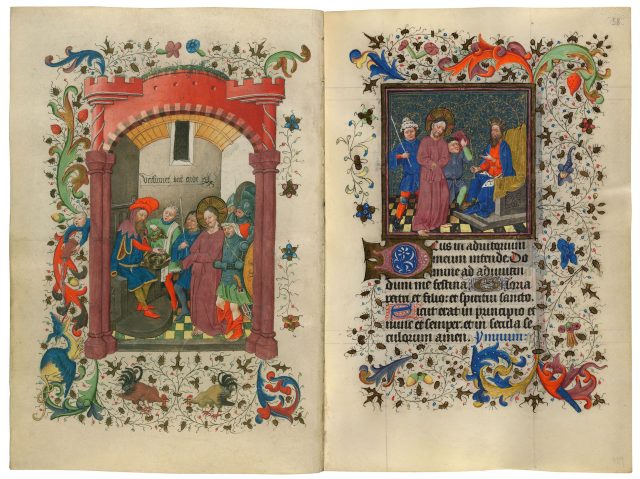 Deus in adiutorium
meum intende. Do
mine ad adiuuan
dum me festina Gloria
patri et filio: et spiritui sancto.
Sicut erat in principio et
nunc et semper. et in secula se
culorum amen. Ymnum